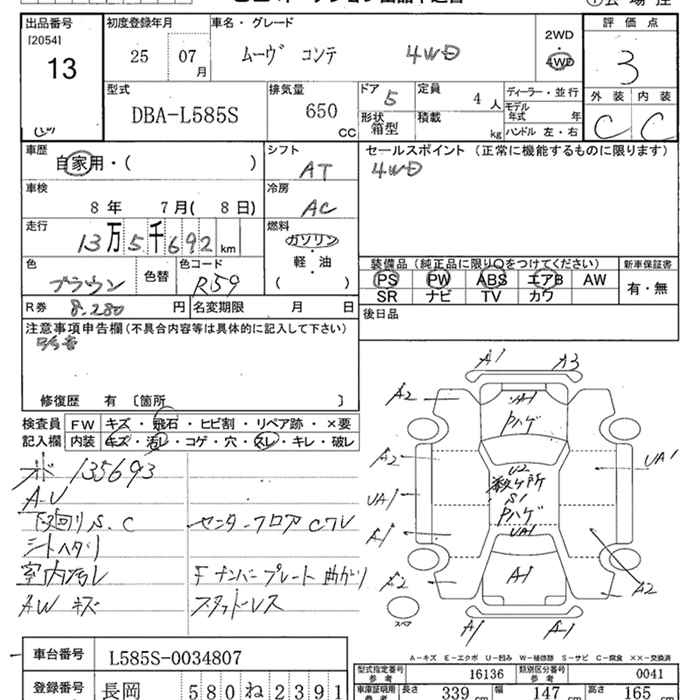 出品番号 初度登録年月 車名・グレード 評価点
[2054] 13
25 07月 ムーヴ コンテ 4WD
2WD・4WD
3
型式 DBA-L585S
排気量 650 CC
ドア 5 定員 4人
形状 箱型 積載 kg
ディーラー・並行
モデル年式 年
ハンドル 左・右
外装 内装
C C
車歴 自家用・( )
シフト AT
セールスポイント (正常に機能するものに限ります)
4WD
車検 8年 7月( 8日)
冷房 AC
走行 13万5千692km
燃料 ガソリン・軽・油
( )
色 ブラウン 色替 色コード R59
装備品(純正品に限り○をつけてください) 新車保証書
PS PW ABS エアB AW
SR ナビ TV カワ
有・無
R券 8,280円 名変期限 月 日
後日品
注意事項申告欄(不具合内容等は具体的に記入して下さい)
修復歴 有 〔箇所 〕
検査員記入欄
FW キズ・飛石・ヒビ割・リペア跡・×要
内装 キズ・汚レ・コゲ・穴・スレ・キレ・破レ
135693
下回りS.C センターフロアCフレ
シートヘタリ
室内汚レ Fナンバープレート曲がり
AWキズ スタットレス
A1 A3
A2 A2
A2 UA1
UA1 A1
A2 A2
A1 A1
UA1
Pハゲ
U2
数ヶ所
S1
Pハゲ
UA1
A1
スペア
A-キズ E-エクボ U-凹み W-補修跡 S-サビ C-腐食 ××-交換済
車台番号 L585S-0034807
型式指定番号 参考 16136 類別区分番号 参考 0041
登録番号 長岡 580 ね 2391
車庫証明用 参考 長さ 339 cm 幅 147 cm 高さ 165 cm